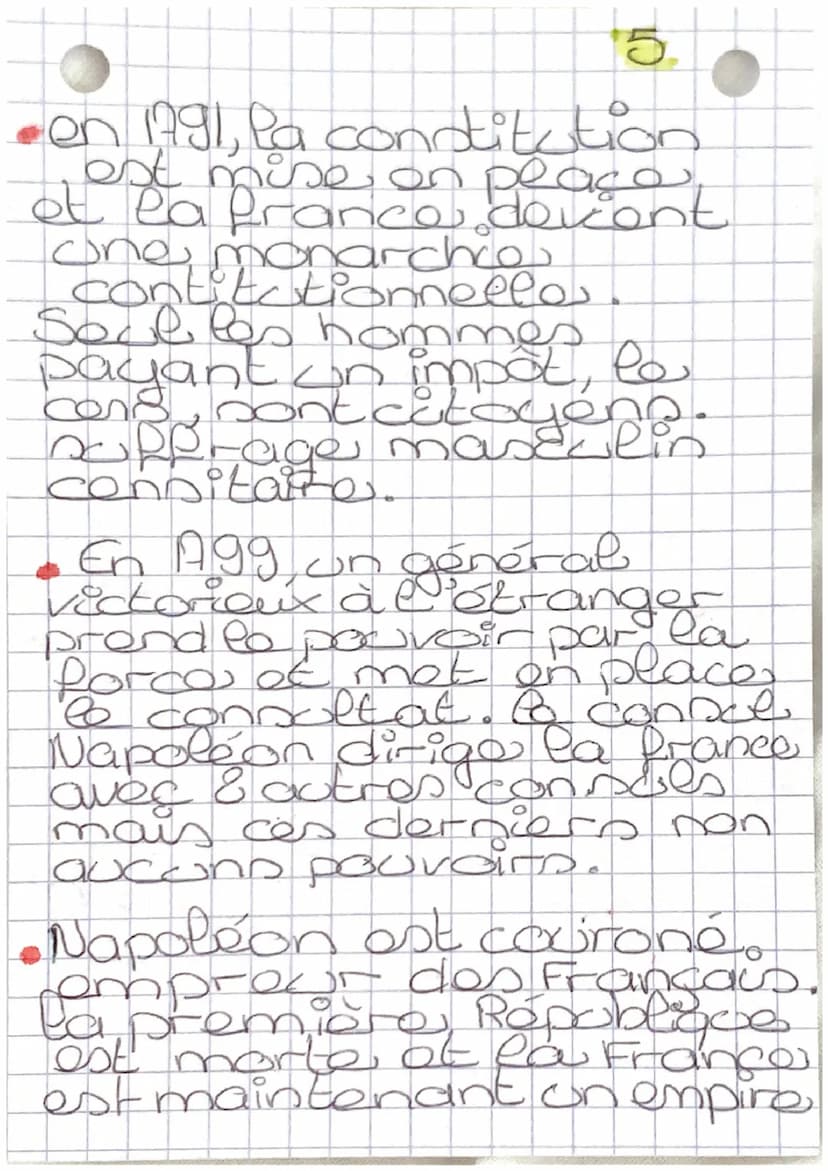 5
en 1791, la constitution
est mise en place
et la france devient
une monarchie
contitutionnelle.
Seul les hommes
payant un impôt, le
cens, sont citoyens.
suffrage masculin
censitaire.
En 1799, un général
victorieux à l'étranger
prend le pouvoir par la
force et met en place
le consultat. le consul
Napoléon dirige la france
avec 2 autres consules
mais ces derniers non
aucuns pouvoirs.
Napoléon est couroné
empreur des Français.
la première République
est morte et la France
est maintenant un empire